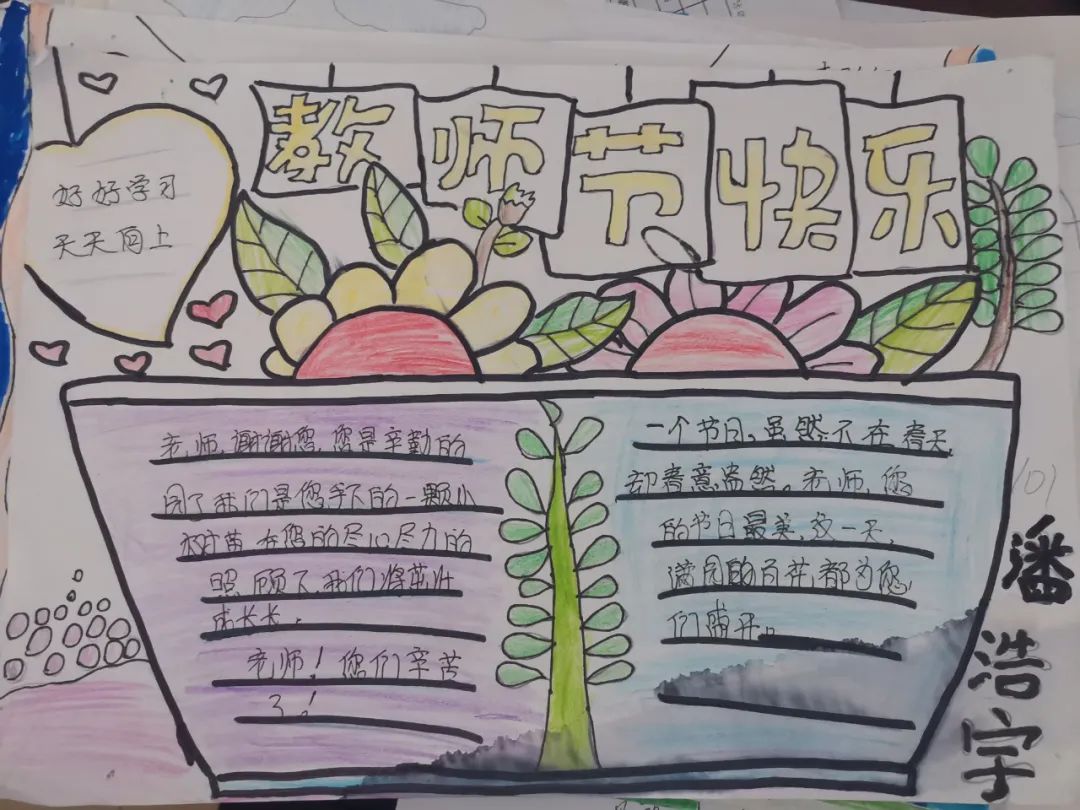 教师节快乐
好好学习
天天向上
老师,谢谢您,您是辛勤的
园丁我们是您手下的一颗小
树苗,在您的尽心尽力的
照顾下,我们将茁壮
成长长,
老师!您们辛苦
了!
一个节日,虽然不在春天,
却春意盎然。老师,您
的节日最美,这一天,
满园的百花,都为您
们开。
潘浩宇